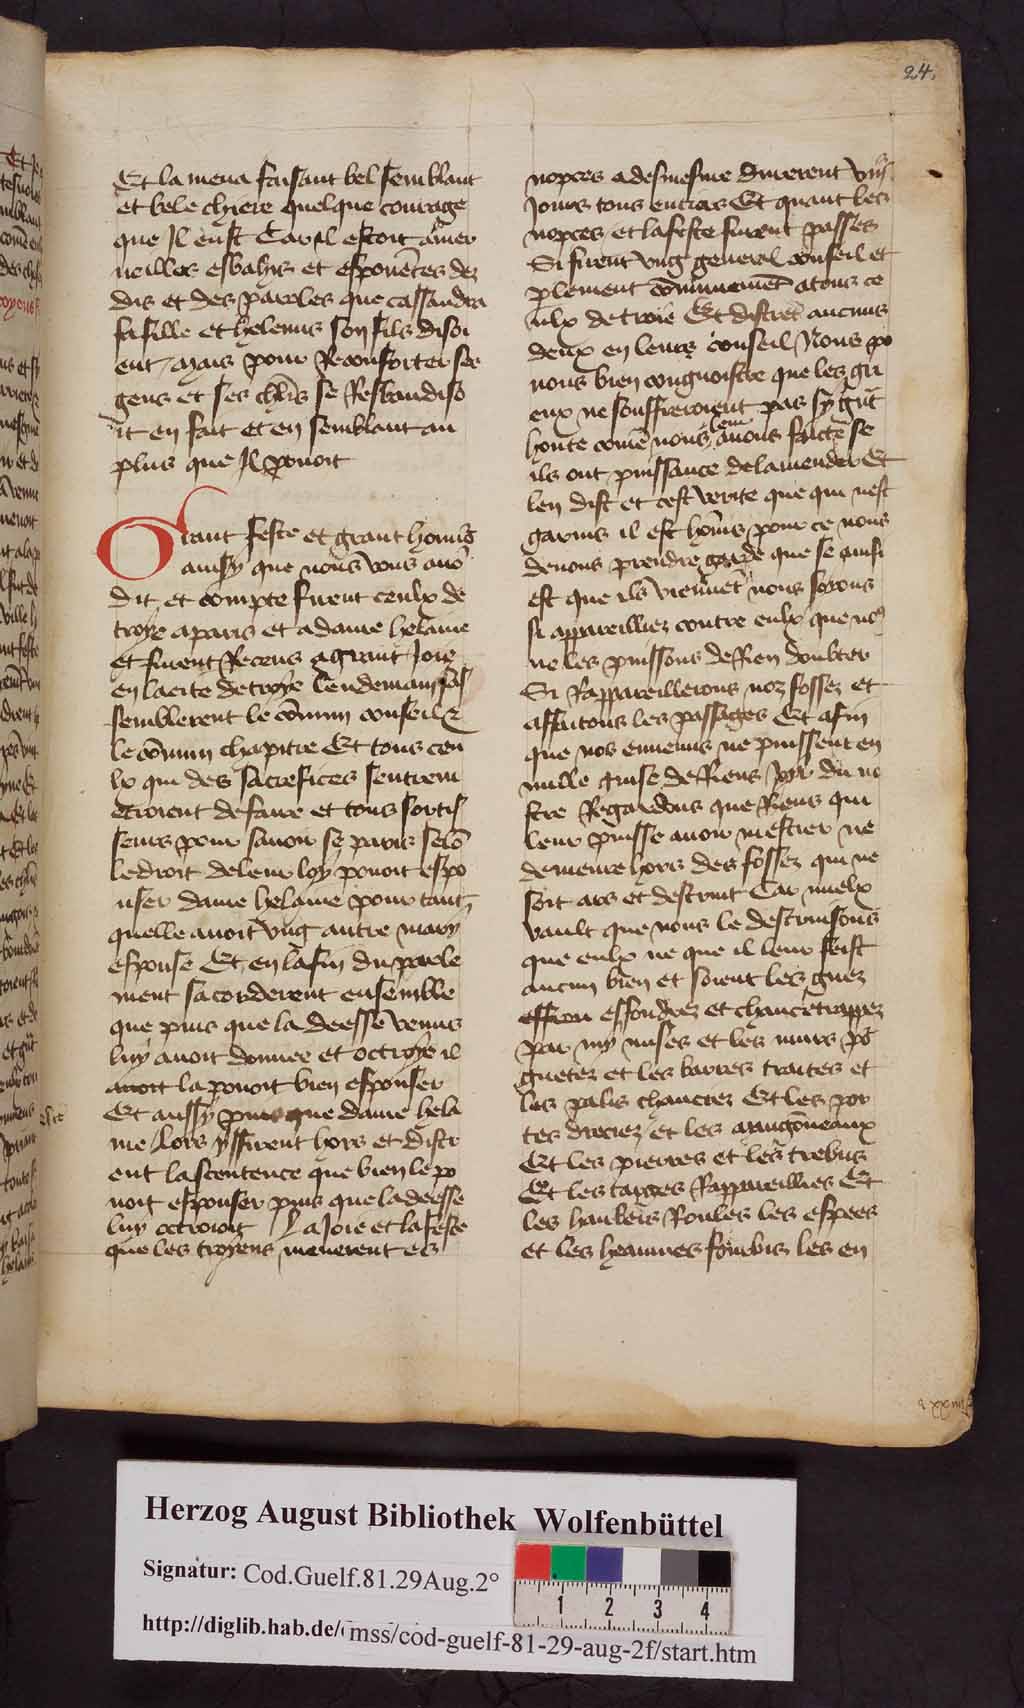 24.
Et la mena faisant bel semblant
et bele chiere quelque courage
que Il eust Car il estoit a mer
ueilles esbahis et espouētes dez
dis et des paroles que cassandra
sa fille et helenus son fils disoi
ent / Mais pour Reconforter ses
gens et ses chl̄rs se Resbaudiso
it en fait et en semblant au
plus que Il pouoit
Grant feste et grant honnī
ainsy que nous vous auōs
dit et compte firent ceulx de
troye a paris et a dame helaine
et furent Receus a grant Joie
en la cite de troye lendemain sas
semblerent le cōmun conseil et
le cōmun chapitre Et tous ceu
lx qui des sacrefices sentrem
ectoient de faire et tous sortis
seurs pour sauoir se paris selō
le droit de leur loy pouoit espo
user dame helaine pour tant
quelle auoit vng autre mary
espouse Et en la fin du parle
ment sacorderent ensemble
que puis que la deesse venus
luy auoit donnee et octroye il
la pouoit bien espouser
Et aussy puis que dame hela
ine / Lors yssirent hors et distr
ent la scentence que bien le po
uoit espouser puis que la deesse
luy octroioit La Joie et la feste
que les troyens menerent es
nopces adesmesme durerent viij
Jours tous entiers Et quant les
nopces et la feste furent passes
Si firent vng general conseil et
parlement cōmunemēt a tous ce
ulx de troie Et distrēt aucuns
deux en leurs conseil / Nous po
uons bien congnoistre que les gri
eux ne souffreroient pas sy grāt
honte comē nous leur auons faicte se
ils ont puissance de lamender Et
len dist et cest verite que qui nest
garnis il est honnis pour ce nous
deuons prendre garde que se ainsi
est que ils viennēt nous soyons
si appareilliez contre eulx que no9
ne les puissons de Rien doubter
Si Rappareillerons noz fossez et
affaitons les passages Et afin
que nos ennemis ne puissent en
nulle guise de Riens Joir du no
stre Regardons que Riens qui
leur puisse auoir mestier ne
demeure hors des fossez qui ne
soit ars et destruit Car mielx
vault que nous le destruisons
que eulx ne que il leur feist
aucun bien et soient les guez
effondrez et chaucetrappez
par my mises et les murs
guetez et les barres traites et
les palis chaucrez Et les por
tes dreciez / et les mangōneaux
Et les pierres et les trebus
Et les targes Rappareillies Et
les haubers Roules les espees
et les heaumes fourbis les en
Herzog August Bibliothek Wolfenbüttel
Signatur: Cod.Guelf.81.29Aug.2°
http://diglib.hab.de/mss/cod-guelf-81-29-aug-2f/start.htm
1 2 3 4